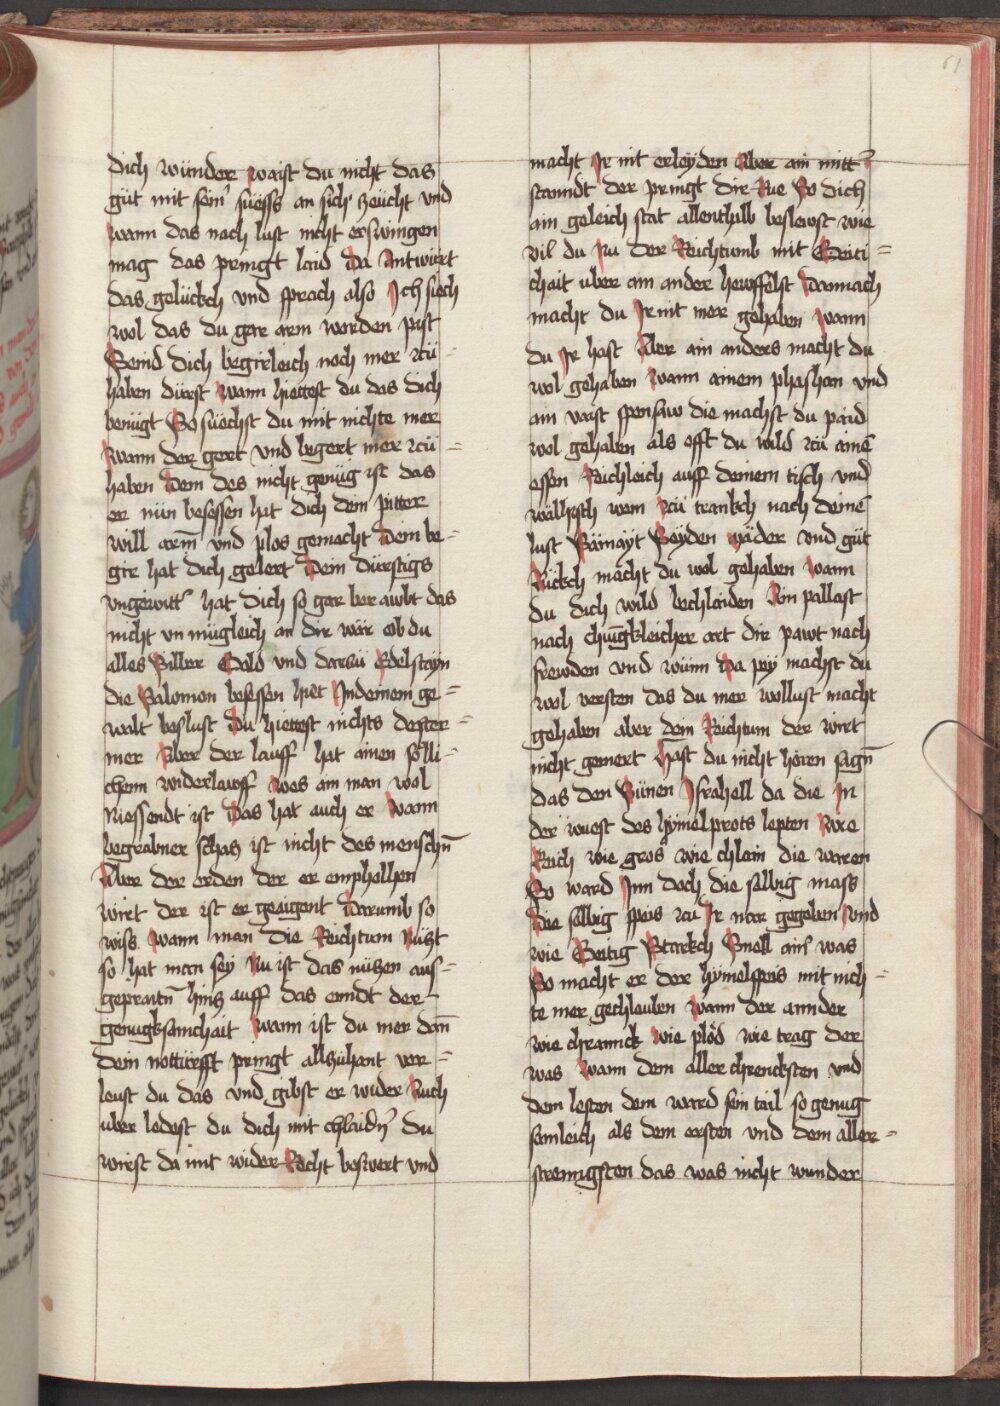 61
dich wünder waist du nicht das
güt mit sein̄ süesss an sich zeücht vnd
wann das nach lust nicht erswingen
mag das pringt laid Da Antwürt
das gelückch vnd sprach also Ich siech
wol das du gar arm worden pist
Seind dich begirleich noch mer zü
haben dürst wann hiettest du des dich
benügt So süechst du mit nichte mer
wann der gert vnd begert mer zcü
haben Dem des nicht genüg ist das
er nün besessen hat dich dein pitter
will arm̄ vnd plos gemacht Dein be
gir hat dich gelert Dein dürstigs
vngewitt' hat dich so gar berawbt das
nicht vn mügleich an dir wär ob du
alles Silber Gold vnd darzü Edelstayn
die Salomon besessen hiet In deinem ge
walt beslust Du hiettest nichts dester
mer Aber der lauff hat ainen sölli
chem widerlawff was am man wol
Niessendt ist Das hat auch er wann
begrabner schatz ist nicht des menschn̄
Aber der erden der er empholhen
wirt der ist er geaigent Darumb so
wiss wann man die Reichtum Nützt
so hat man sey Nu ist das nützen aus
gepraitn̄ hintz auff das enndt der
genugksamchait wann ist du mer dan̄
dein nottürfft pringt allzühant ver
leust du das vnd gibst er wider Auch
uber ledest du dich mit chlaidn̄ Du
wirst da mit wider Recht beswert vnd
macht Ir nit erleyden Aber ain mitt'
stanndt der pringt dir Rue So dich
ain geleich stat allenthalb besleust wie
vil du Nu der Reichtumb mit Geiti
chait uber ain ander hewffelst Darnnach
macht du Ir nit mer gehaben wann
du Ir hast Aber ain anders macht du
wol gehaben wann ainem phashan vnd
ain vaist spensaw die machst du paid
wol gehaben als offt du wild zcü ainē
essen Reichleich auff deinem tisch vnd
wällhisch wein zcü trankch nach deinē
lust Sämayt Seyden päder vnd güt
Rückch macht du wol gehaben wann
du dich wild bechlaiden Ain pallast
nach chün̄gkleicher art dir pawt nach
frewden vnd wünn Da pey machst du
wol versten das du mer wollust macht
gehaben aber dein Reichtum der wirt
nicht gemert Hast du nicht hören sagn̄
das den Sünen Israhell da die In
der wuest des hymelprots lepten Wie
Reich wie gros wie chlain die waren
So ward Inn doch die selbig mass
Die selbig speis zcu Ir nar gegeben Vnd
wie Geitig Starkch Snell ain' was
So macht er der hymelspeis mit nich
te mer gechleuben Wann der annder
wie chrannck wie plöd wie trag der
was Wann dem aller chrenckisten vnd
dem lesten dem ward sein tail so genug
samleich als dem ersten vnd dem aller
strenngisten das was nicht wunder